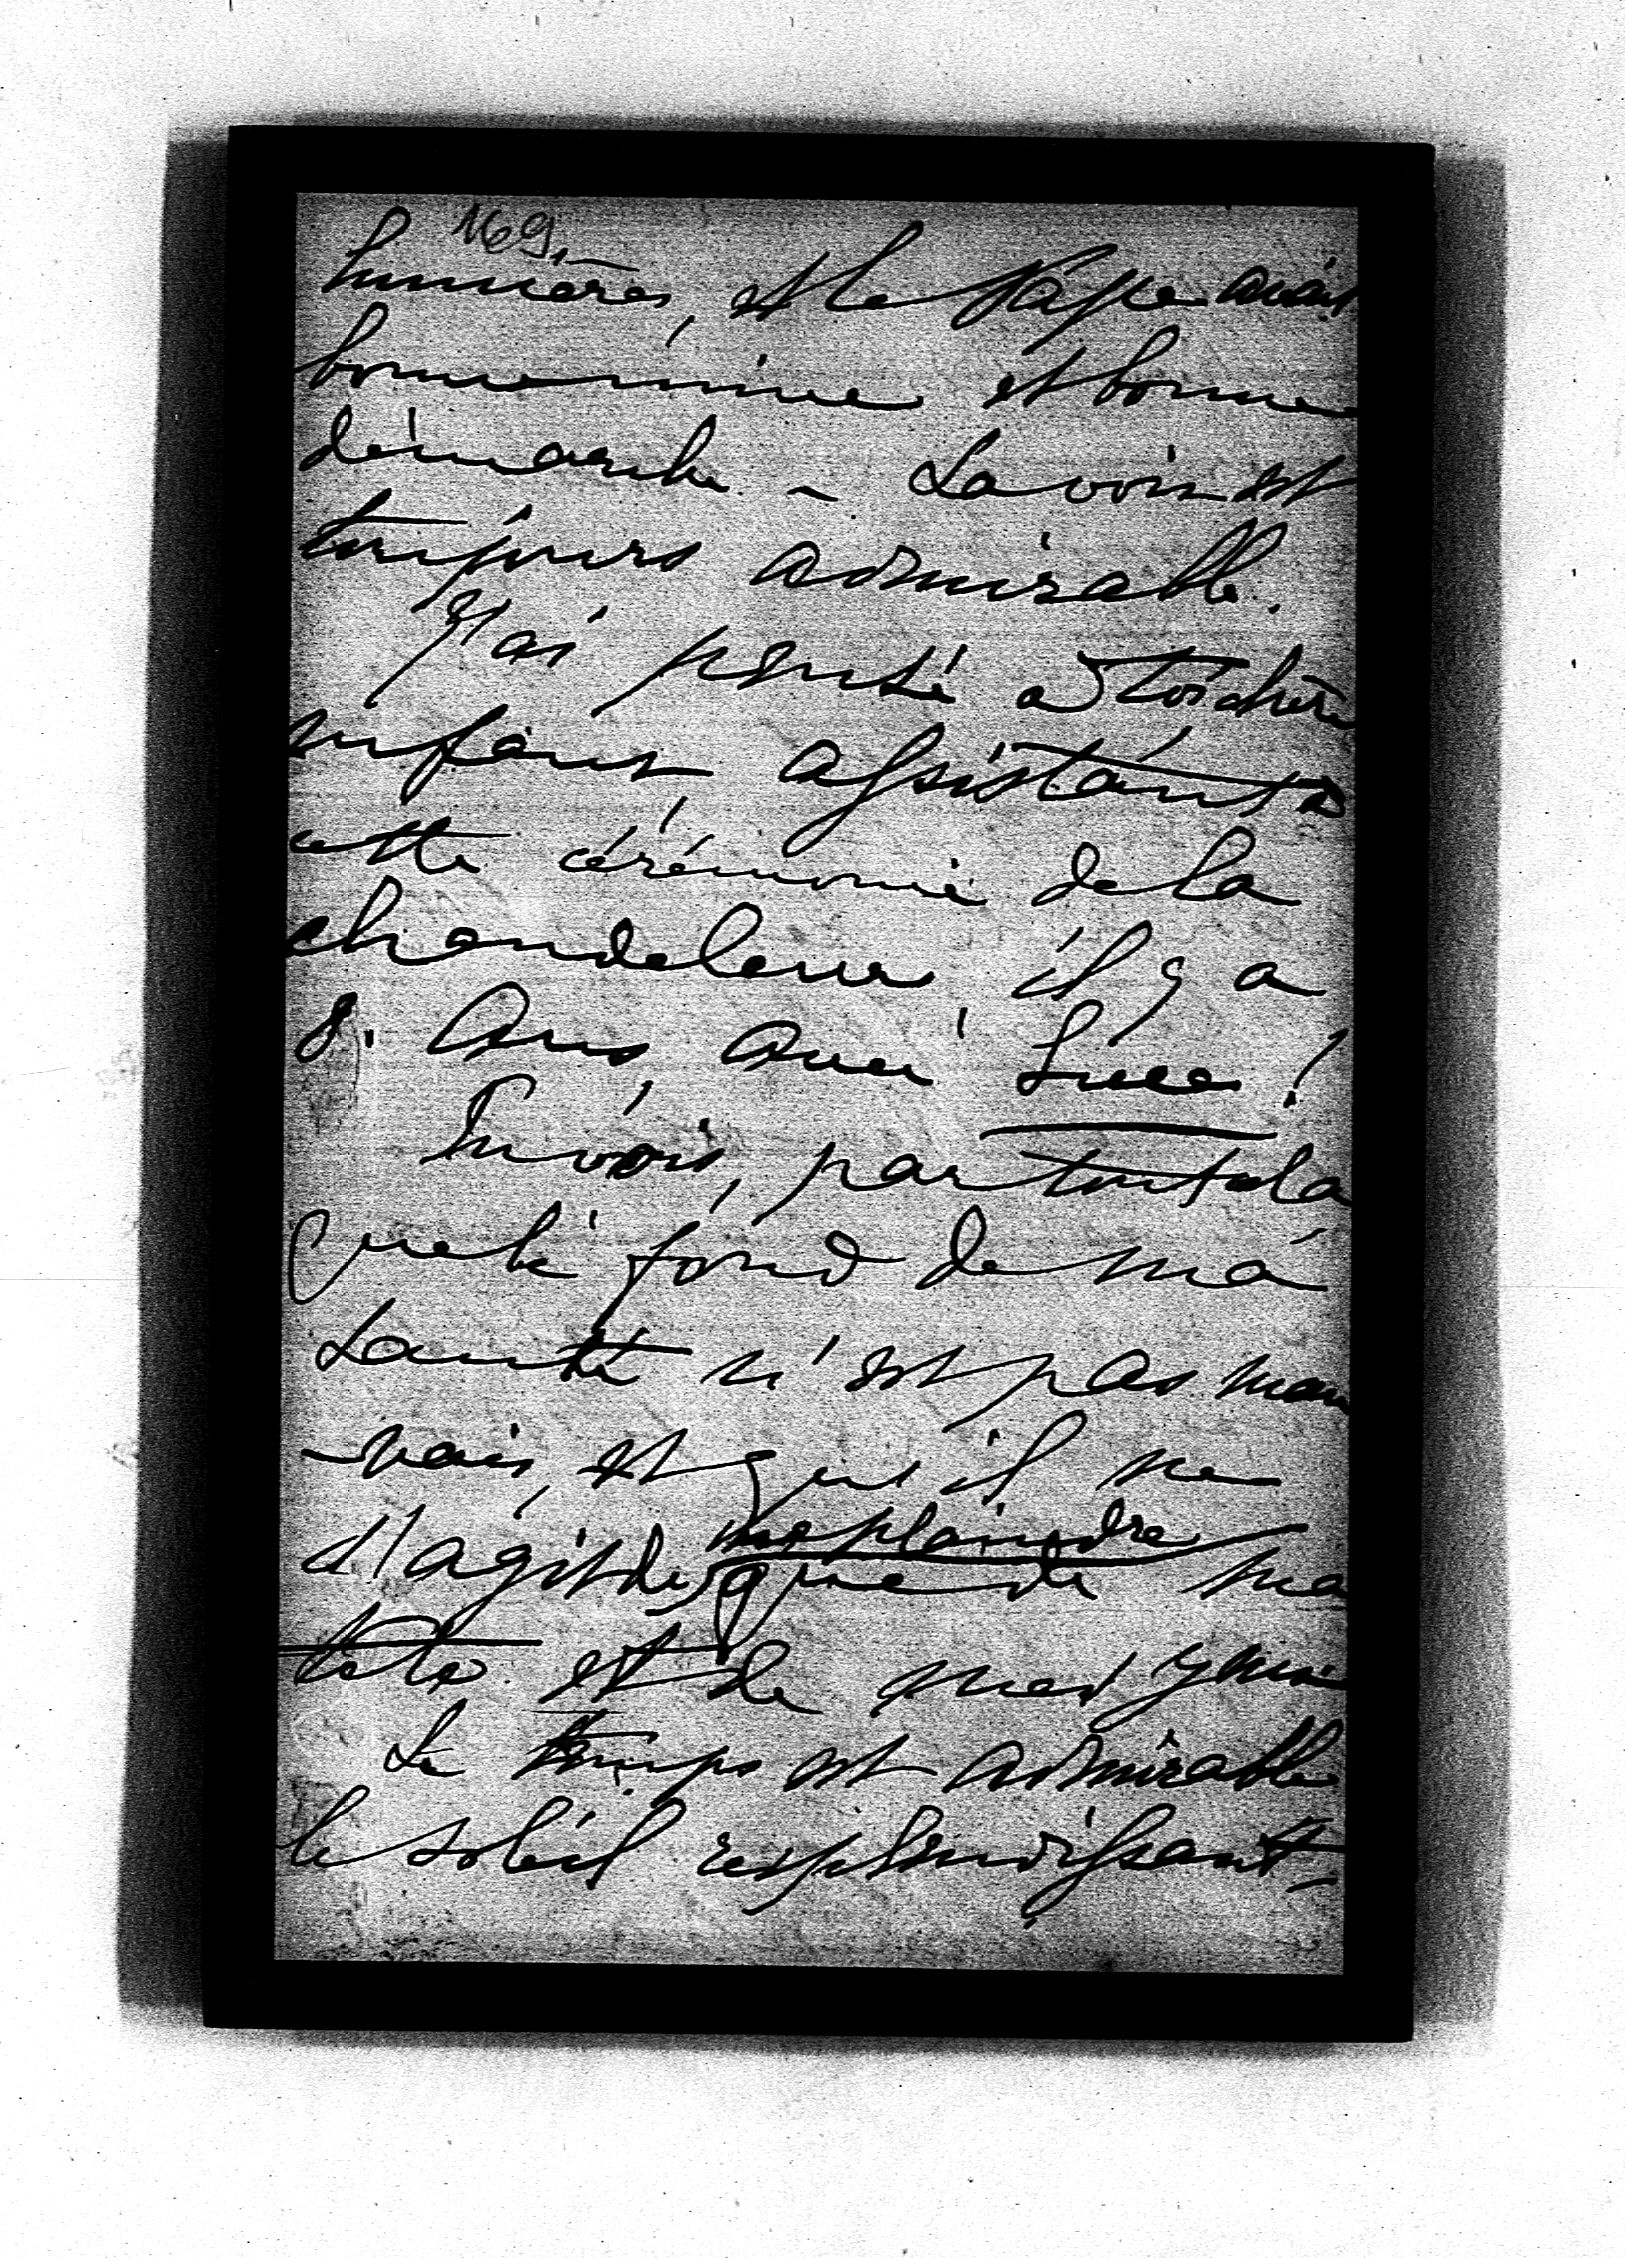 169.
lumières, et le Pape avait
bonne mine et bonne
démarche. – La voix est
toujours admirable.
J'ai pensé à toi chère
enfant, assistant à
cette cérémonie de la
chandeleur il y a
8. ans, avec Luca !
Tu vois, par tout cela
que le fond de ma
santé n'est pas mau
-vais, et qu'il ne
s'agit de me plaindre
que de ma
tête et de mes yeux
Le temps est admirable
le soleil resplendissant –